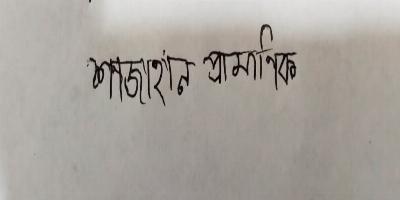 শাজাহান প্রামানিক